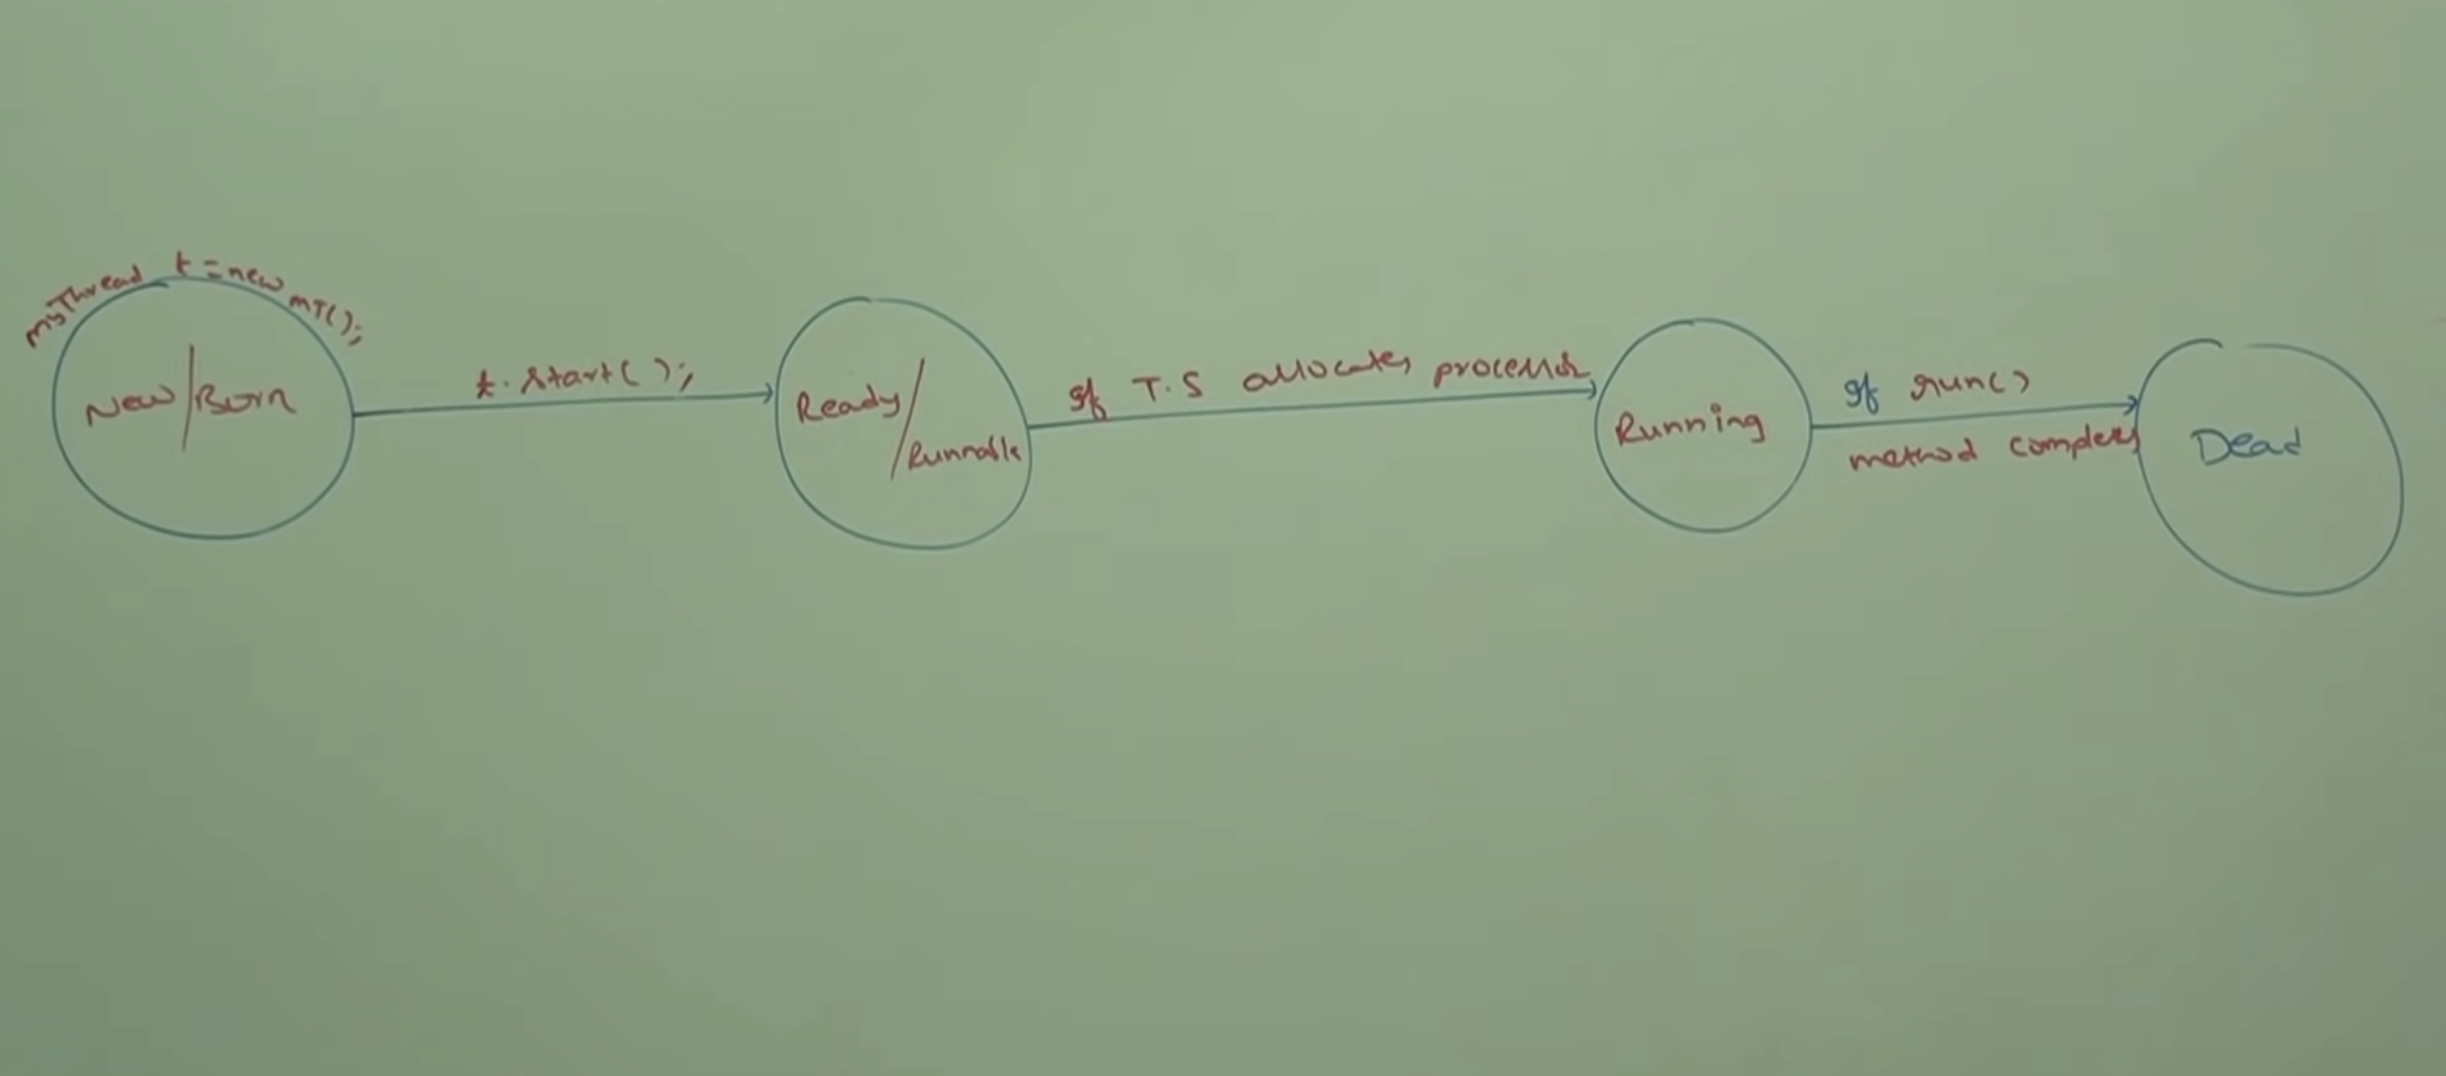 myThread t = new MT();
New/Born
t.start();
Ready/
Runnable
If T.S allocates processor
Running
If run()
method completes
Dead